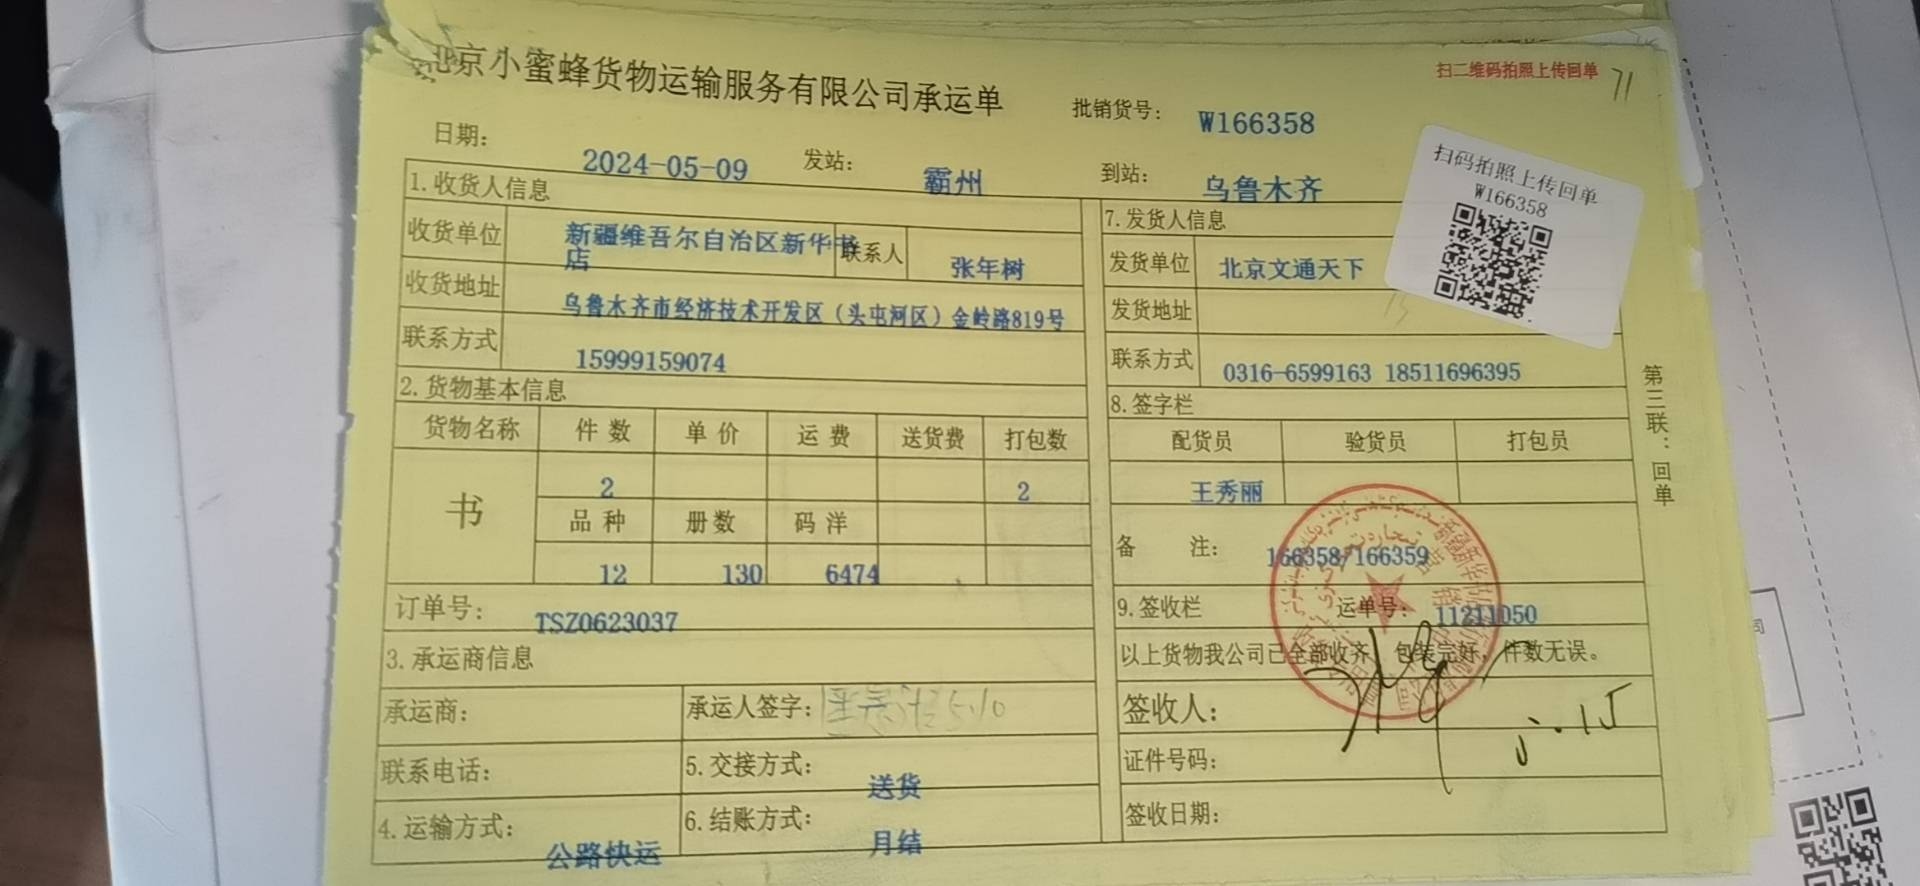 北京小蜜蜂货物运输服务有限公司承运单
扫二维码拍照上传回单
71
批销货号: W166358
日期: 2024-05-09 发站: 霸州 到站: 乌鲁木齐
扫码拍照上传回单
W166358
1.收货人信息
收货单位 新疆维吾尔自治区新华书店 联系人 张年树
收货地址 乌鲁木齐市经济技术开发区(头屯河区)金岭路819号
联系方式 15999159074
2.货物基本信息
货物名称 件数 单价 运费 送货费 打包数
书 2 2
品种 册数 码洋
12 130 6474
订单号: TSZ0623037
3.承运商信息
承运商: 承运人签字: 5.10
联系电话: 5.交接方式: 送货
4.运输方式: 公路快运 6.结账方式: 月结
7.发货人信息
发货单位 北京文通天下
发货地址
联系方式 0316-6599163 18511696395
8.签字栏
配货员 验货员 打包员
王秀丽
备 注: 166358/166359
9.签收栏 运单号: 11211050
以上货物我公司已全部收齐, 包装完好, 件数无误。
签收人:
证件号码:
签收日期:
第三联: 回单